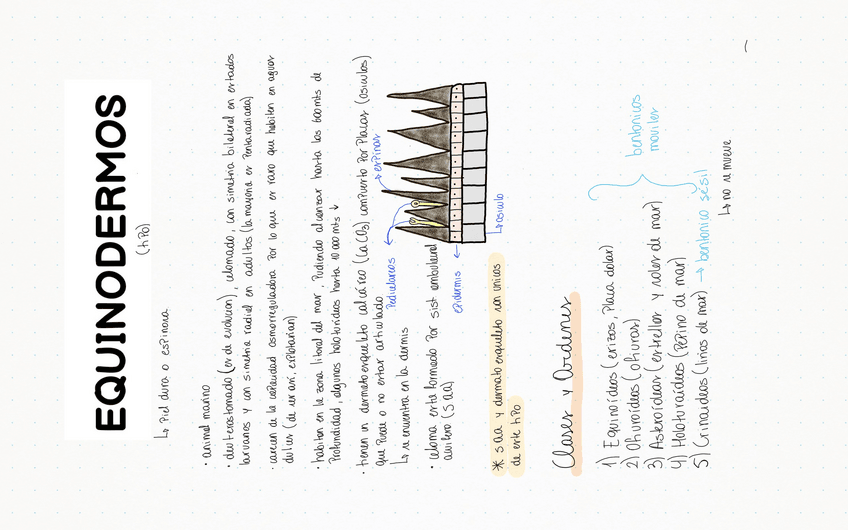 EQUINODERMOS
(tipo)
↳ Piel dura o espinosa
• animal marino
• deuterostomado (es de evolucion), celomado, con simetria bilateral en estados
larvarios y con simetria radial en adultos (la mayoria es Pentarradiada)
• carecen de la capacidad osmorreguladora Por lo que es raro que habiten en aguas
dulces (de ser asi, explotarian)
• habitan en la zona litoral del mar, Pudiendo alcanzar hasta los 600mts de
Profundidad, algunos holoturideos hasta 10 000 mts ↓
• tienen un dermato esqueleto calcáreo (CaCO3) compuesto Por Placas (osiculos)
que Puede o no estar articulado
↳ se encuentra en la dermis
• celoma esta formado Por sist ambulacral
acuifero (S aa)
espinas
Pedicelareos
epidermis
↳ osiculo
* saa y dermato esqueleto son unicos
de este tipo
Clases y Ordenes
1) Equinoideos (erizos, Placa dolar)
2) Ofiuroideos (ofiuras)
3) Asteroideos (estrellas y soles de mar)
4) Holoturoideos (PePino de mar)
5) Crinoideos (lirios de mar) → bentonico sésil
bentonicos
moviles
↳ no se mueve